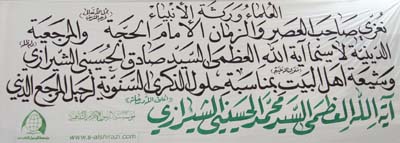 العلماء ورثة الأنبياء
نعزي صاحب العصر والزمان الإمام الحجة والمرجعية
الدينية لاسيما آية الله العظمى السيد صادق الحسيني الشيرازي
وشيعة أهل البيت بمناسبة حلول الذكرى السنوية لرحيل المرجع الديني
آية الله العظمى السيد محمد الحسيني الشيرازي
www.s-alshirazi.com